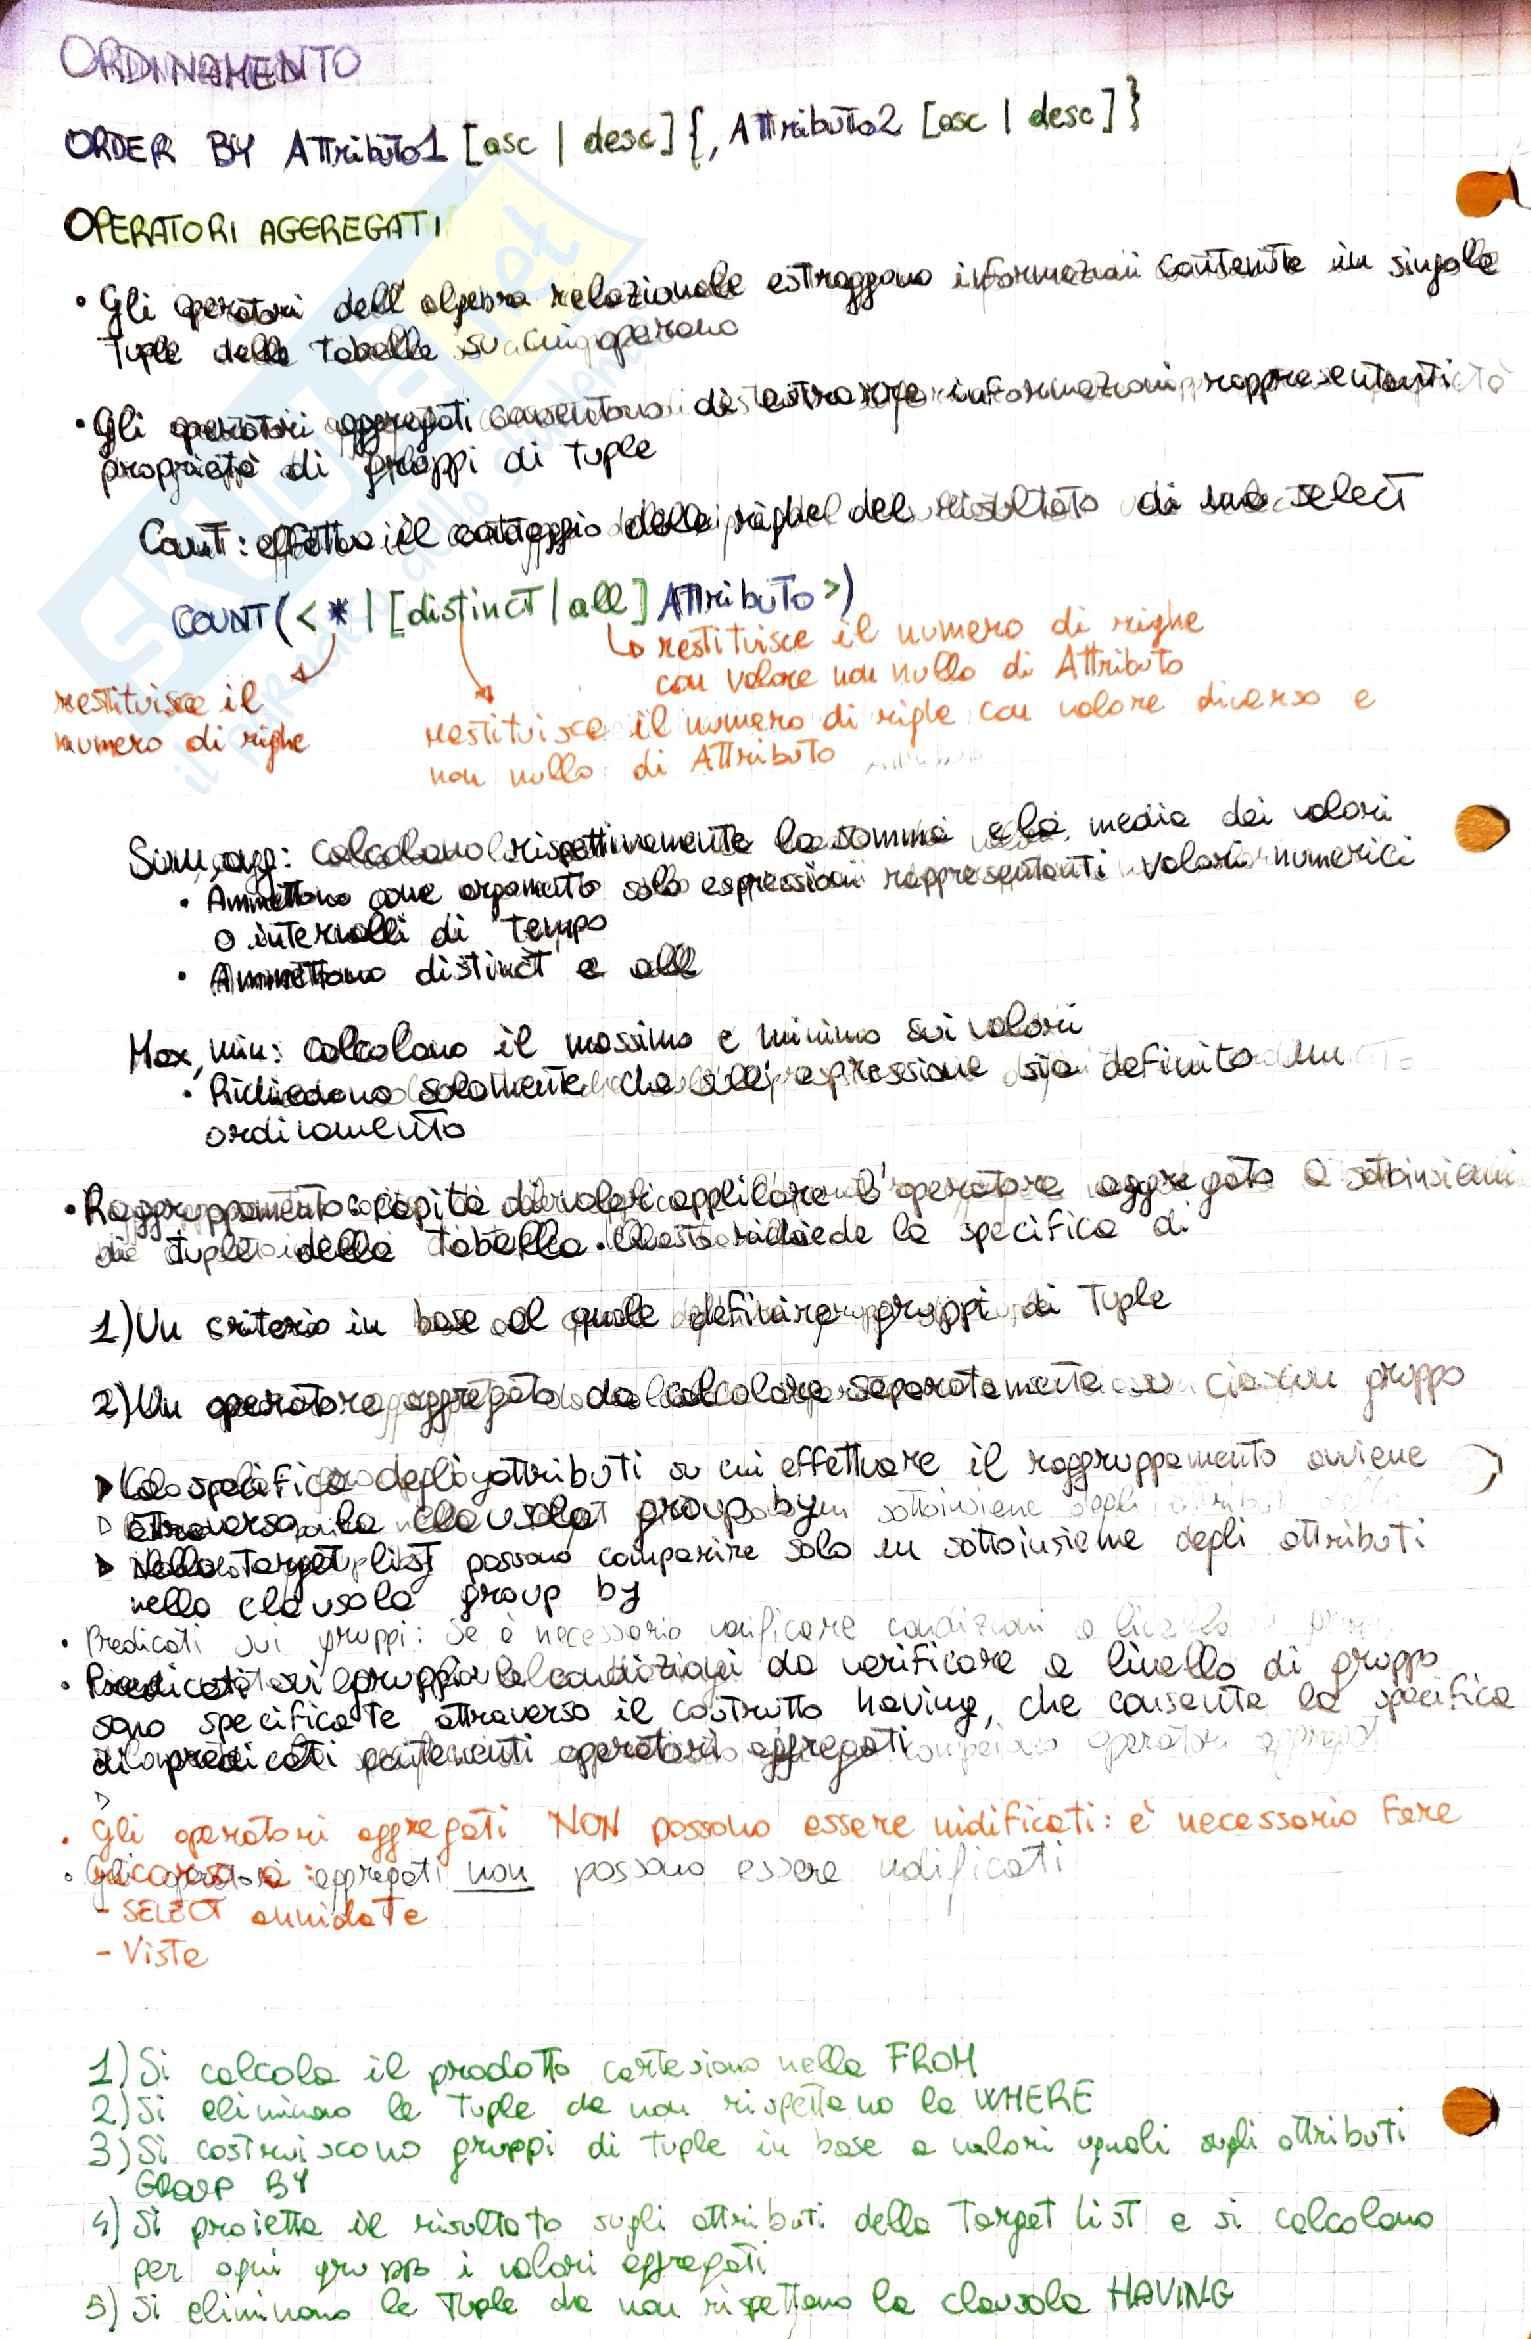 ORDINAMENTO
ORDER BY Attributo1 [asc | desc] {, Attributo2 [asc | desc] }
OPERATORI AGGREGATI
• Gli operatori dell'algebra relazionale estraggono informazioni contenute in singole
tuple delle tabelle su cui operano
• Gli operatori aggregati consentono di estrarre informazioni rappresentanti
proprietà di gruppi di tuple
Count: effettua il conteggio delle righe del risultato di una select
COUNT(<*|[distinct|all] Attributo>)
↳ restituisce il numero di righe
con valore non nullo di Attributo
restituisce il
numero di righe
restituisce il numero di righe con valore diverso e
non nullo di Attributo
Sum, avg: calcolano rispettivamente la somma e la media dei valori
• Ammettono come argomento solo espressioni rappresentanti valori numerici
o intervalli di tempo
• Ammettono distinct e all
Max, min: calcolano il massimo e minimo sui valori
• Richiedono solamente che sull'espressione sia definito un
ordinamento
• Raggruppamento: capita di voler applicare l'operatore aggregato a sottoinsiemi
di tuple della tabella. Questo richiede la specifica di
1) Un criterio in base al quale definire gruppi di tuple
2) Un operatore aggregato da calcolare separatamente su ciascun gruppo
▸ La specifica degli attributi su cui effettuare il raggruppamento avviene
attraverso la clausola group by
▸ Nella target list possono comparire solo un sottoinsieme degli attributi
nella clausola group by
• Predicati sui gruppi: se è necessario verificare condizioni a livello
• Predicati sui gruppi: le condizioni da verificare a livello di gruppo
sono specificate attraverso il costrutto having, che consente la specifica
di predicati contenenti operatori aggregati
• Gli operatori aggregati NON possono essere nidificati: è necessario fare
ricorso a:
• Gli operatori aggregati non possono essere nidificati
- SELECT annidate
- Viste
1) Si calcola il prodotto cartesiano nella FROM
2) Si eliminano le tuple che non rispettano la WHERE
3) Si costruiscono gruppi di tuple in base a valori uguali sugli attributi
GROUP BY
4) Si proietta il risultato sugli attributi della Target List e si calcolano
per ogni gruppo i valori aggregati
5) Si eliminano le tuple che non rispettano la clausola HAVING